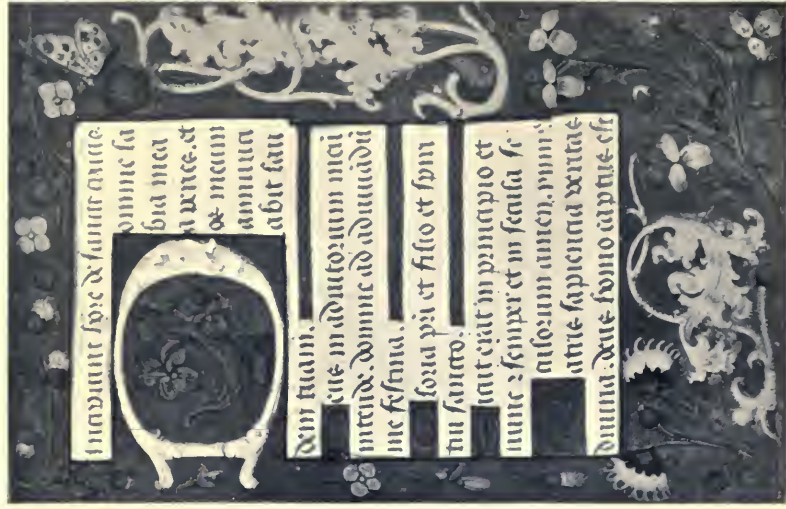 omine la
bia mea
aperies. et
os meum
annuncia
abit lau
dem tuam.
eus in adiutorium mei
intende. domine ad adiuuādū
me festina.
loria pri et filio et spiri
tui sancto.
icut erat in principio et
nunc et semper et in secula se
culorum amen.
atris sapiencia veritas
diuina. deus homo captus est